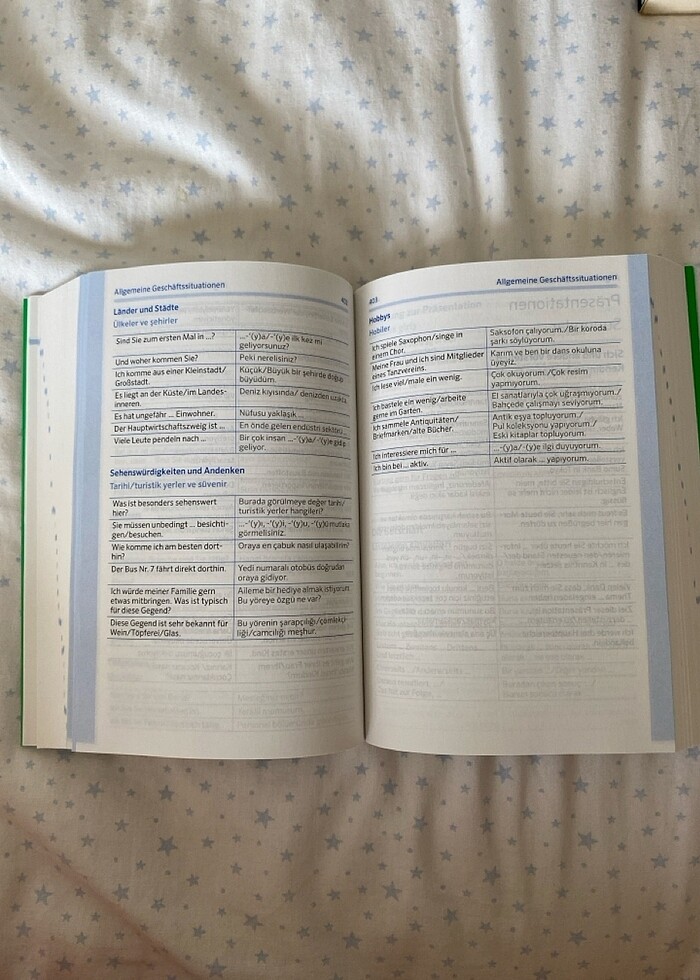 Allgemeine Geschäftssituationen
Länder und Städte
Ülkeler ve şehirler
Sind Sie zum ersten Mal in ...?
...-'(y)a/-'(y)e ilk kez mi
geliyorsunuz?
Und woher kommen Sie?
Peki nerelisiniz?
Ich komme aus einer Kleinstadt/
Großstadt.
Küçük/Büyük bir şehirde doğup
büyüdüm.
Es liegt an der Küste/im Landes-
inneren.
Deniz kıyısında/denizden uzakta
Es hat ungefähr ... Einwohner.
Nüfusu yaklaşık ...
Der Hauptwirtschaftszweig ist ...
En önde gelen endüstri sektörü
Viele Leute pendeln nach ...
Bir çok insan ...-'(y)a/-'(y)e gidip
geliyor.
Sehenswürdigkeiten und Andenken
Tarihi/turistik yerler ve süvenir
Was ist besonders sehenswert
hier?
Burada görülmeye değer tarihi/
turistik yerler hangileri?
Sie müssen unbedingt ... besichti-
gen/besuchen.
...-'(y)ı, -'(y)i, -'(y)u, -'(y)ü mutlaka
görmelisiniz.
Wie komme ich am besten dort-
hin?
Oraya en çabuk nasıl ulaşabilirim?
Der Bus Nr. 7 fährt direkt dorthin.
Yedi numaralı otobüs doğrudan
oraya gidiyor.
Ich würde meiner Familie gern
etwas mitbringen. Was ist typisch
für diese Gegend?
Aileme bir hediye almak istiyorum.
Bu yöreye özgü ne var?
Diese Gegend ist sehr bekannt für
Wein/Töpferei/Glas.
Bu yörenin şarapçılığı/çömlekçi-
liği/camcılığı meşhur.
403
Allgemeine Geschäftssituationen
Hobbys
Hobiler
Ich spiele Saxophon/singe in
einem Chor.
Saksofon çalıyorum./Bir koroda
şarkı söylüyorum.
Meine Frau und ich sind Mitglieder
eines Tanzvereins.
Karım ve ben bir dans okuluna
üyeyiz.
Ich lese viel/male ein wenig.
Çok okuyorum./Çok resim
yapmıyorum.
Ich bastele ein wenig/arbeite
gerne im Garten.
El sanatlarıyla çok uğraşmıyorum./
Bahçede çalışmayı seviyorum.
Ich sammele Antiquitäten/
Briefmarken/alte Bücher.
Antik eşya topluyorum./
Pul koleksiyonu yapıyorum./
Eski kitaplar topluyorum.
Ich interessiere mich für ...
...-'(y)a/-'(y)e ilgi duyuyorum.
Ich bin bei ... aktiv.
Aktif olarak ... yapıyorum.